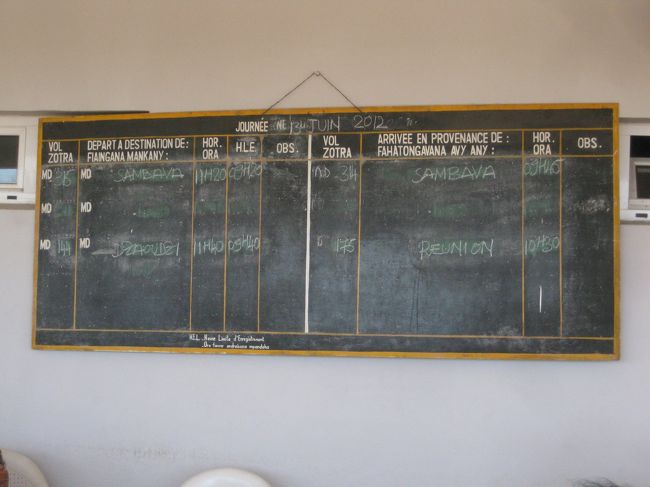 JOURNÉE JUIN 2012
VOL ZOTRA DEPART A DESTINATION DE: FIAINGANA MANKANY: HOR. ORA HLE OBS. VOL ZOTRA ARRIVÉE EN PROVENANCE DE: FAHATONGAVANA AVY ANY: HOR. ORA OBS.
MD MD SAMBAVA 11H20 09H20 314 SAMBAVA 09H45
MD MD
MD 144 MD DZAOUDZI 11H40 09H40 175 REUNION 10H30
H.L.E. Heure Limite d'Enregistrement
Ora farana